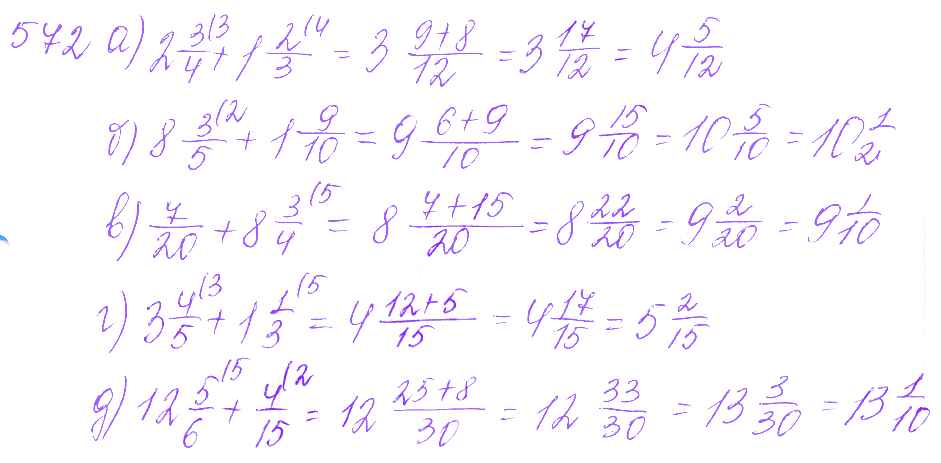 572 а) 2 3/4 (3 + 1 2/3 (4 = 3 (9+8)/12 = 3 17/12 = 4 5/12
б) 8 3/5 (2 + 1 9/10 = 9 (6+9)/10 = 9 15/10 = 10 5/10 = 10 1/2
в) 7/20 + 8 3/4 (5 = 8 (7+15)/20 = 8 22/20 = 9 2/20 = 9 1/10
г) 3 4/5 (3 + 1 1/3 (5 = 4 (12+5)/15 = 4 17/15 = 5 2/15
д) 12 5/6 (5 + 4/15 (2 = 12 (25+8)/30 = 12 33/30 = 13 3/30 = 13 1/10